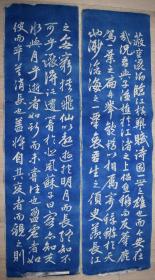 蔽空釃酒臨江橫槊賦詩固一世之雄也而今安在
哉況吾與子漁樵於江渚之上侶魚蝦而友麋鹿
駕一葉之扁舟舉匏樽以相屬寄蜉蝣於天
地渺滄海之一粟哀吾生之須臾羨長江
之無窮挾飛仙以遨遊抱明月而長終知不
可乎驟得託遺響於悲風蘇子曰客亦知夫
水與月乎逝者如斯而未嘗往也盈虛者如
彼而卒莫消長也蓋將自其變者而觀之則